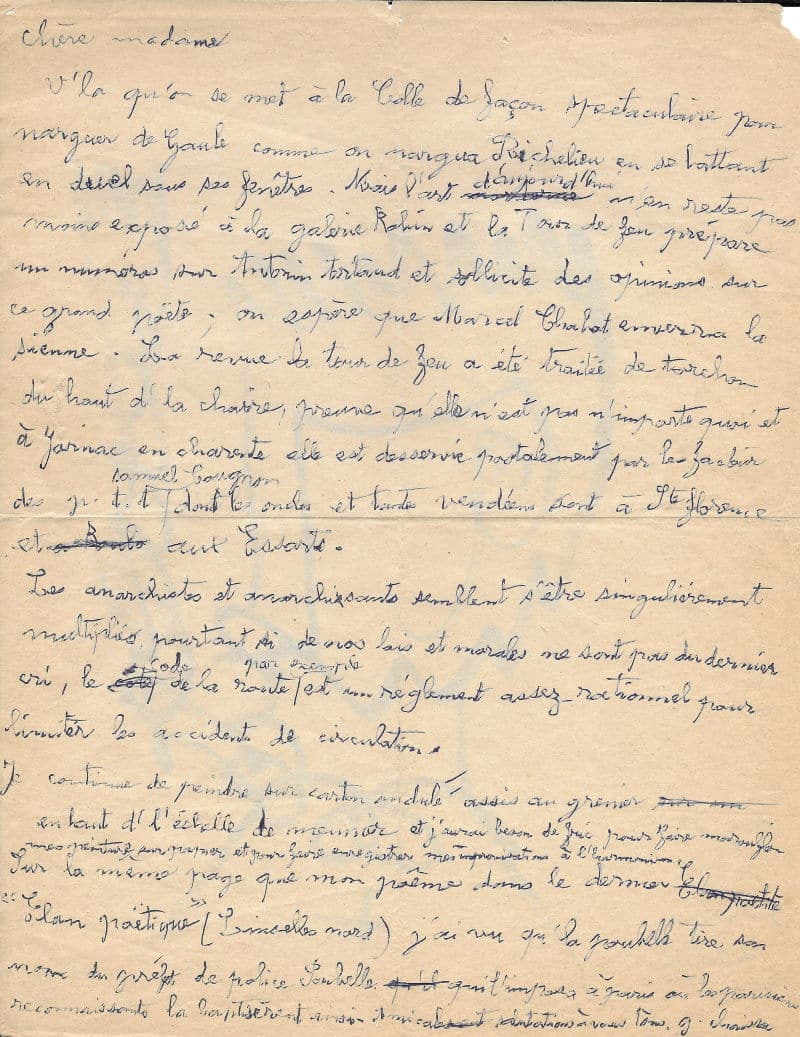 Chère madame
V'la qu'on se met à la Colle de façon spectaculaire pour
narguer de Gaule comme on nargua Richelieu en se battant
en duel sous ses fenêtres. Mais l'art d'aujourd'hui n'en reste pas
moins exposé à la galerie Robin et la Tour de feu prépare
un numéros sur Antonin tortaud et sollicite des opinions sur
ce grand poëte, on espère que Marcel Chabot enverra la
sienne. La revue la tour de feu a été traitée de torchon
du haut d' la chaire, preuve qu'elle n'est pas n'importe quoi et
à Jarnac en charente elle est desservie postalement par le facteur
samuel Cougnon
des p.t.t / dont les oncles et tantes vendéens sont à Ste florence
et aux Essarts.
Les anarchistes et anarchisants semblent s'être singulièrement
multipliés, pourtant si de nos lois et morales ne sont pas du dernier
code par exemple
cri, le de la route / est un réglement assez rationnel pour
limiter les accident de circulation.
Je continue de peindre sur carton ondulé assis au grenier sur un
en haut d' l'échelle de meunier et j'aurai besoin de fric pour faire maroufler
mes peinture sur papier et pour faire enregistrer mes improvisations à l'harmonium
Sur la même page que mon poême dans le dernier
"Elan poëtique" (Linselles nord) j'ai vu qu'la poubelle tire son
nom du préfet de police Poubelle qu'il qui l'imposa à paris où les parisiens
reconnaissants la baptisèrent ainsi. à vous tous, g. chaissac